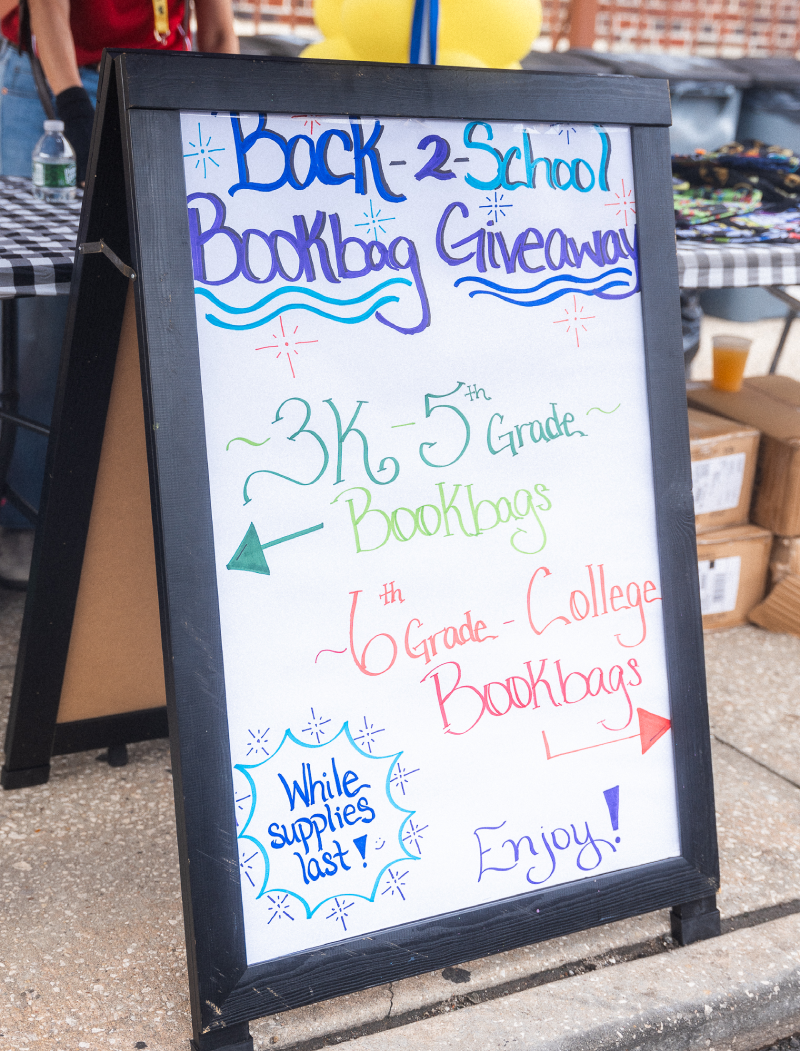 Back-2-School
Bookbag Giveaway
~3K-5th Grade~
Bookbags
~6th Grade - College
Bookbags
While
supplies
last!
Enjoy!